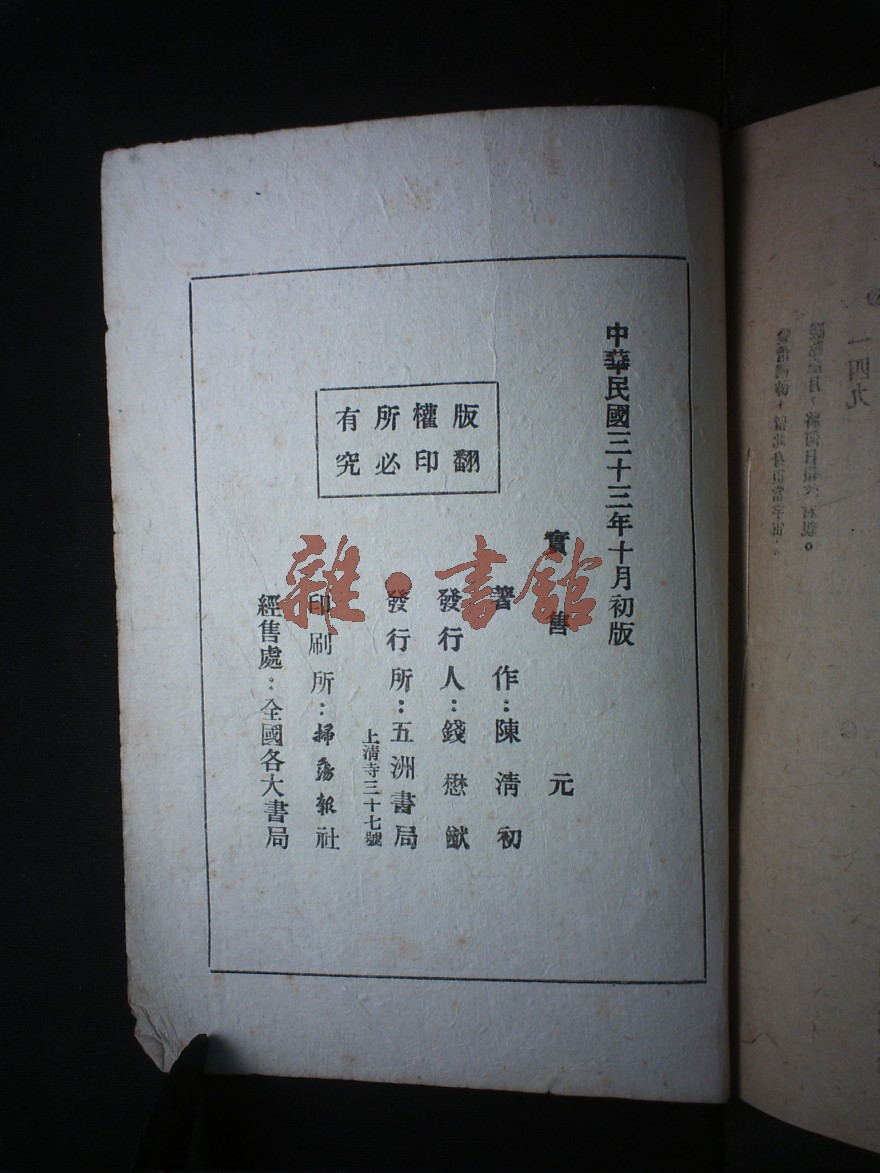 中華民國三十三年十月初版
實售 元
著作：陳清初
發行人：錢懋猷
發行所：五洲書局
上清寺三十七號
印刷所：掃蕩報社
經售處：全國各大書局
版權所有
翻印必究
雜·書館
一四九